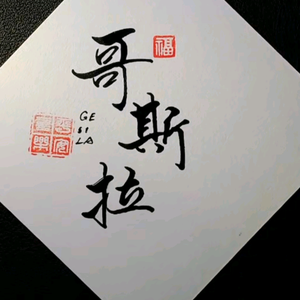 福
哥斯拉
GE
SI
LA